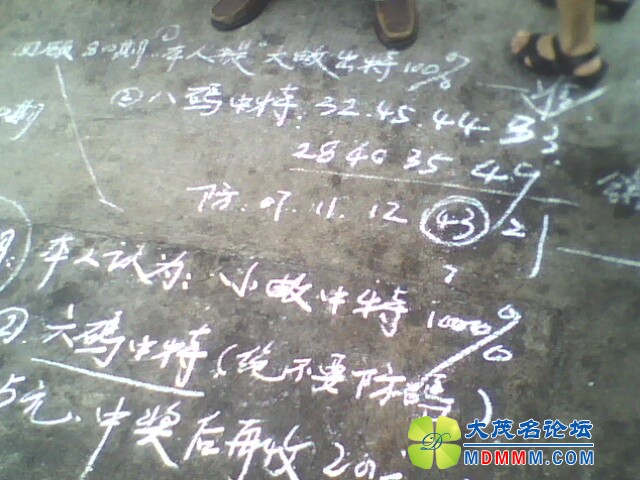 回顾80期①本人提"大数出特100%
②八码中特.32.45.44.33
28 40 35 49
0期
防.07.11.12 ㊸
本人认为:小数中特1000%
②六码中特(绝不要防码)
5元.中奖后再收20
大茂名论坛
MDMMM.COM